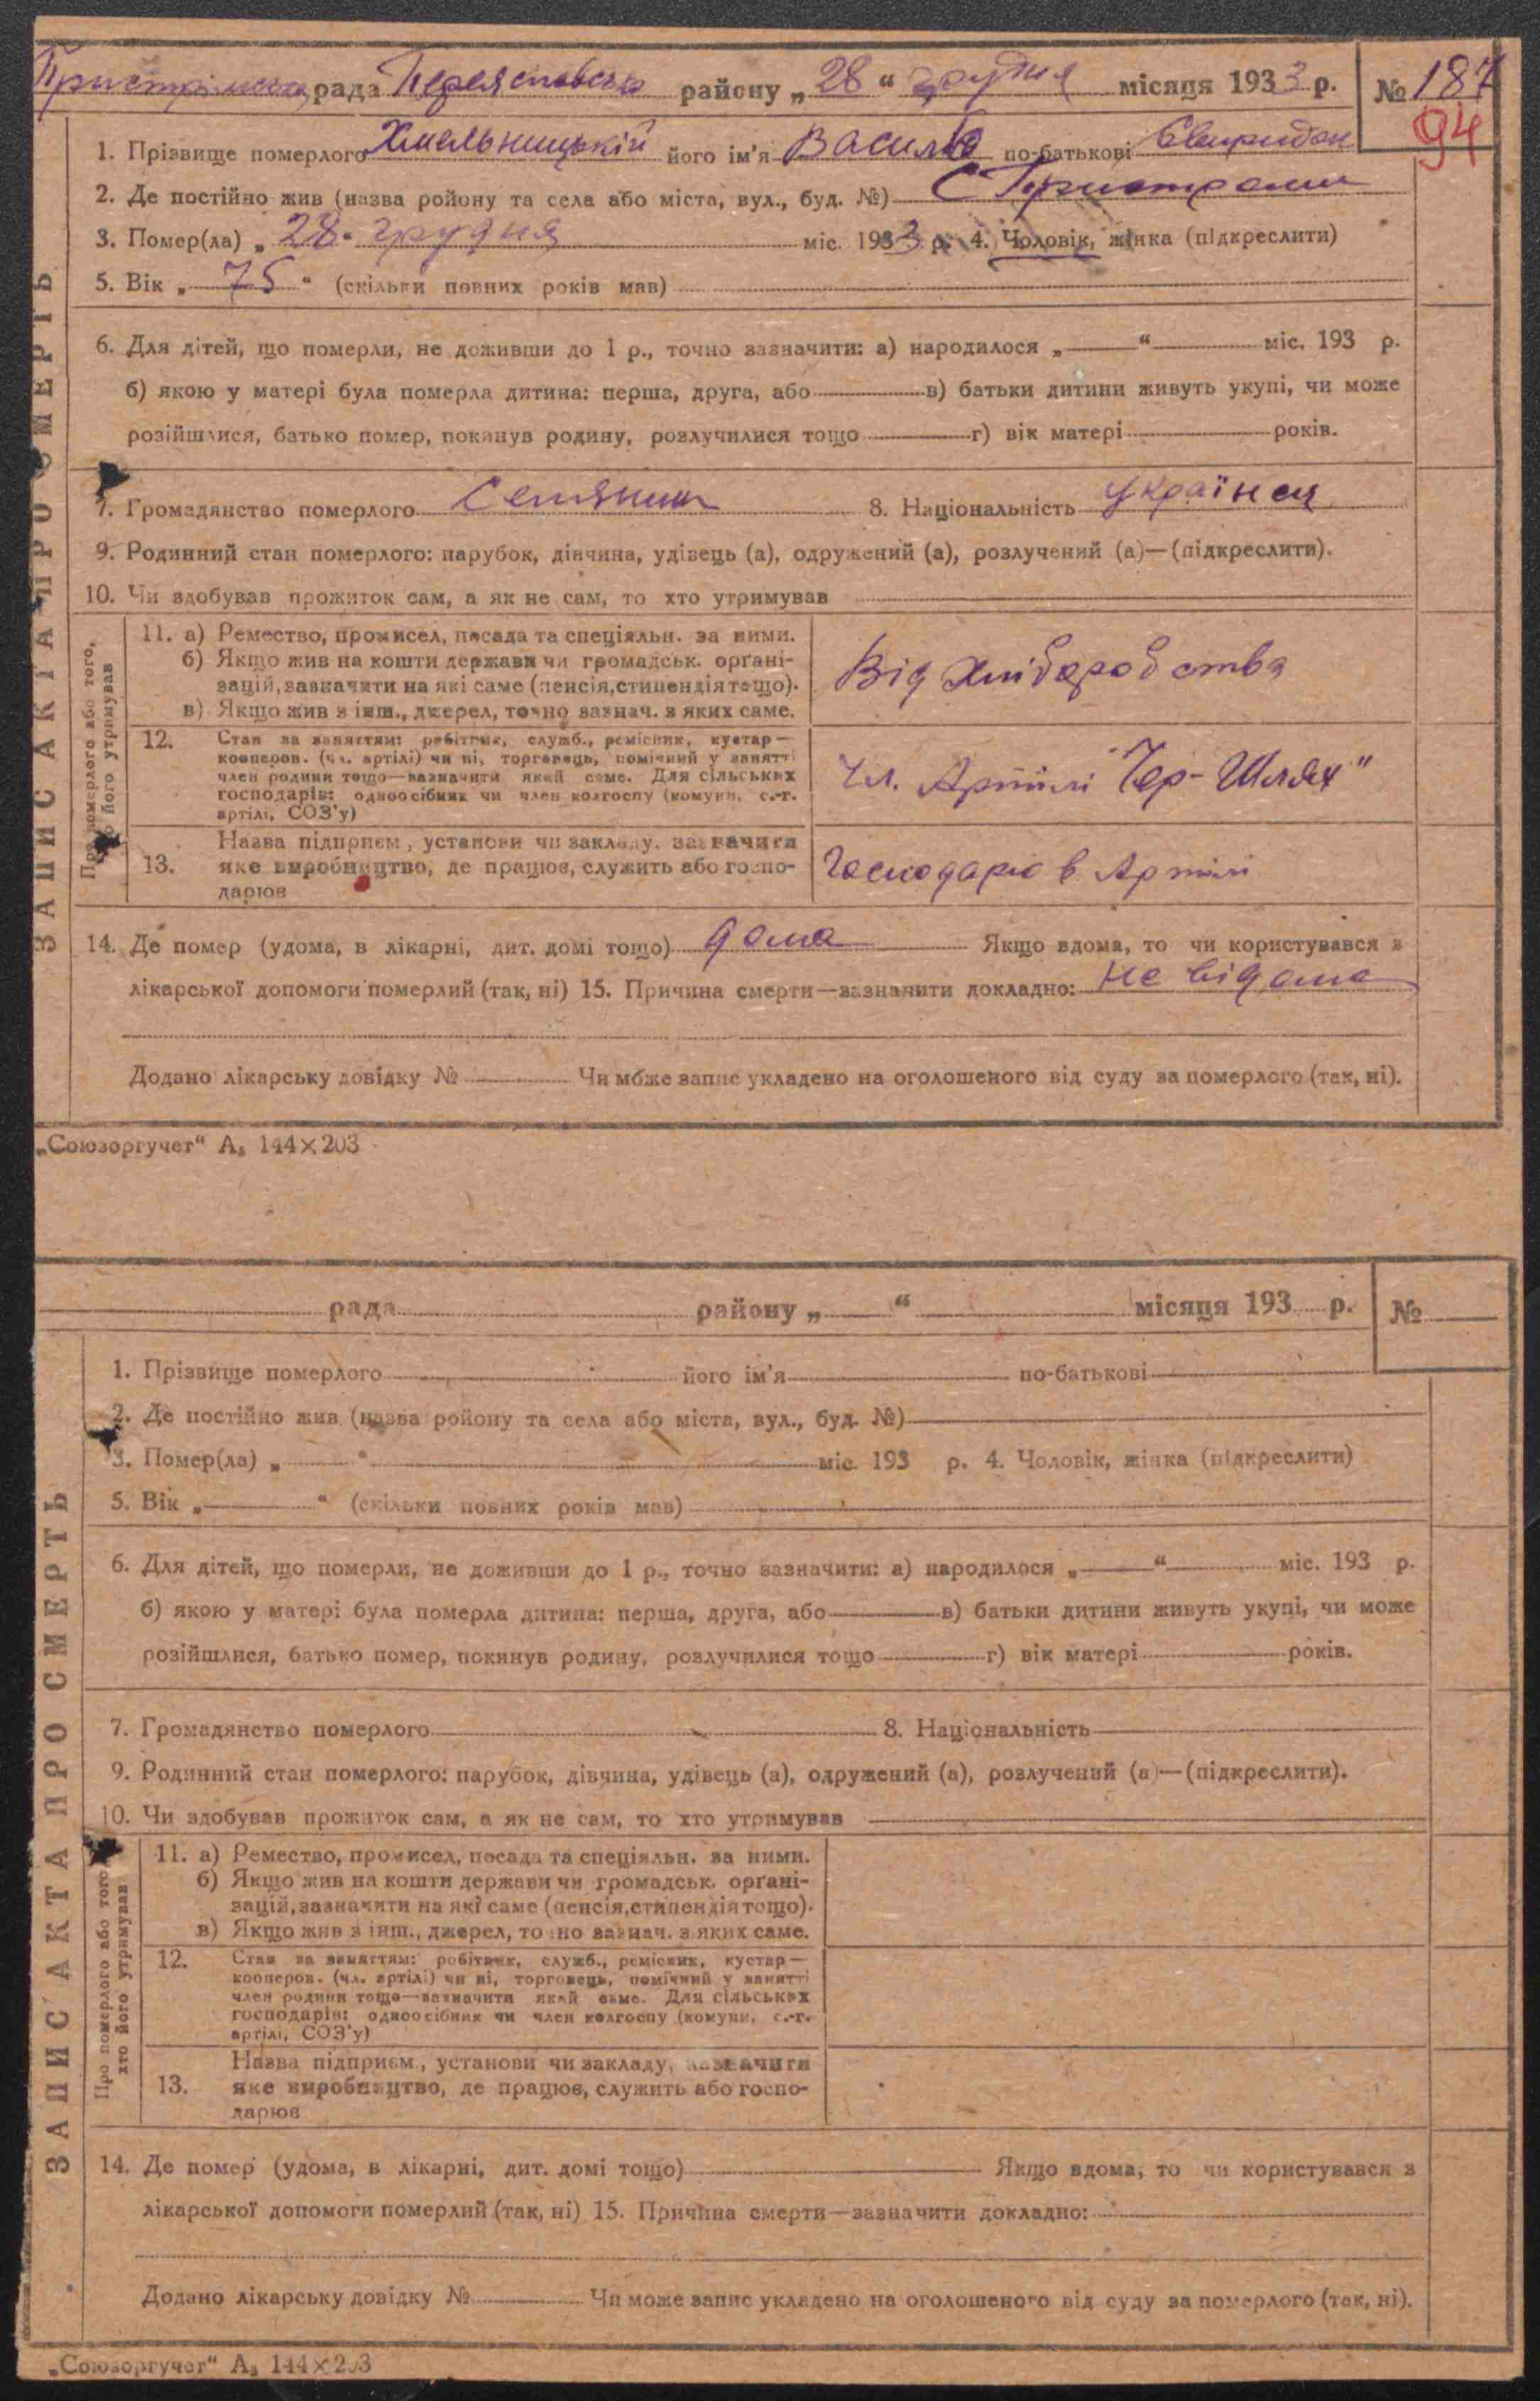 Пристрімська рада Переяславсько району „28“ грудня місяця 1933 р. № 187
94
1. Прізвище померлого Хмельницький його ім'я Василь по-батькові Свиридон
2. Де постійно жив (назва ройону та села або міста, вул., буд. №) С Пристроми
3. Помер(ла) „28“ грудня міс. 1933 р. 4. Чоловік, жінка (підкреслити)
5. Вік „75“ (скільки повних років мав)
6. Для дітей, що померли, не доживши до 1 р., точно зазначити: а) народилося „ “ міс. 193 р.
б) якою у матері була померла дитина: перша, друга, або в) батьки дитини живуть укупі, чи може
розійшлися, батько помер, покинув родину, розлучилися тощо г) вік матері років.
7. Громадянство померлого Селянин 8. Національність Українец
9. Родинний стан померлого: парубок, дівчина, удівець (а), одружений (а), розлучений (а)—(підкреслити).
10. Чи здобував прожиток сам, а як не сам, то хто утримував
ЗАПИС АКТА ПРО СМЕРТЬ
Про померлого або того, хто його утримував
11. а) Ремество, промисел, посада та спеціяльн. за ними.
б) Якщо жив на кошти держави чи громадськ. органі-
зацій, зазначити на які саме (пенсія, стипендія тощо).
в) Якщо жив з інш., джерел, точно зазнач. з яких саме.
Від Хліборобства
12. Стан за заняттям: робітник, служб., ремісник, кустар—
кооперов. (чл. артілі) чи ні, торговець, помічний у занятті
член родини тощо—зазначити який саме. Для сільських
господарів: одноосібник чи член колгоспу (комуни, с.-г.
артілі, СОЗ'у)
Чл. Артілі "Чер-Шлях"
13. Назва підприєм., установи чи закладу, зазначити
яке виробництво, де працює, служить або госпо-
дарює
Господарю в Артілі
14. Де помер (удома, в лікарні, дит. домі тощо) дома Якщо вдома, то чи користувався з
лікарської допомоги померлий (так, ні) 15. Причина смерти—зазначити докладно: Не відома
Додано лікарську довідку № Чи може запис укладено на оголошеного від суду за померлого (так, ні).
„Союзоргучет“ А₅ 144×203
рада району „ “ місяця 193 р. №
1. Прізвище померлого його ім'я по-батькові
2. Де постійно жив (назва ройону та села або міста, вул., буд. №)
3. Помер(ла) „ “ міс. 193 р. 4. Чоловік, жінка (підкреслити)
5. Вік „ “ (скільки повних років мав)
6. Для дітей, що померли, не доживши до 1 р., точно зазначити: а) народилося „ “ міс. 193 р.
б) якою у матері була померла дитина: перша, друга, або в) батьки дитини живуть укупі, чи може
розійшлися, батько помер, покинув родину, розлучилися тощо г) вік матері років.
7. Громадянство померлого 8. Національність
9. Родинний стан померлого: парубок, дівчина, удівець (а), одружений (а), розлучений (а)—(підкреслити).
10. Чи здобував прожиток сам, а як не сам, то хто утримував
ЗАПИС АКТА ПРО СМЕРТЬ
Про померлого або того хто його утримував
11. а) Ремество, промисел, посада та спеціяльн. за ними.
б) Якщо жив на кошти держави чи громадськ. органі-
зацій, зазначити на які саме (пенсія, стипендія тощо).
в) Якщо жив з інш., джерел, точно зазнач. з яких саме.
12. Стан за заняттям: робітник, служб., ремісник, кустар—
кооперов. (чл. артілі) чи ні, торговець, помічний у занятті
член родини тощо—зазначити який саме. Для сільських
господарів: одноосібник чи член колгоспу (комуни, с.-г.
артілі, СОЗ'у)
13. Назва підприєм., установи чи закладу, зазначити
яке виробництво, де працює, служить або госпо-
дарює
14. Де помер (удома, в лікарні, дит. домі тощо) Якщо вдома, то чи користувався з
лікарської допомоги померлий (так, ні) 15. Причина смерти—зазначити докладно:
Додано лікарську довідку № Чи може запис укладено на оголошеного від суду за померлого (так, ні).
„Союзоргучет“ А₅ 144×203